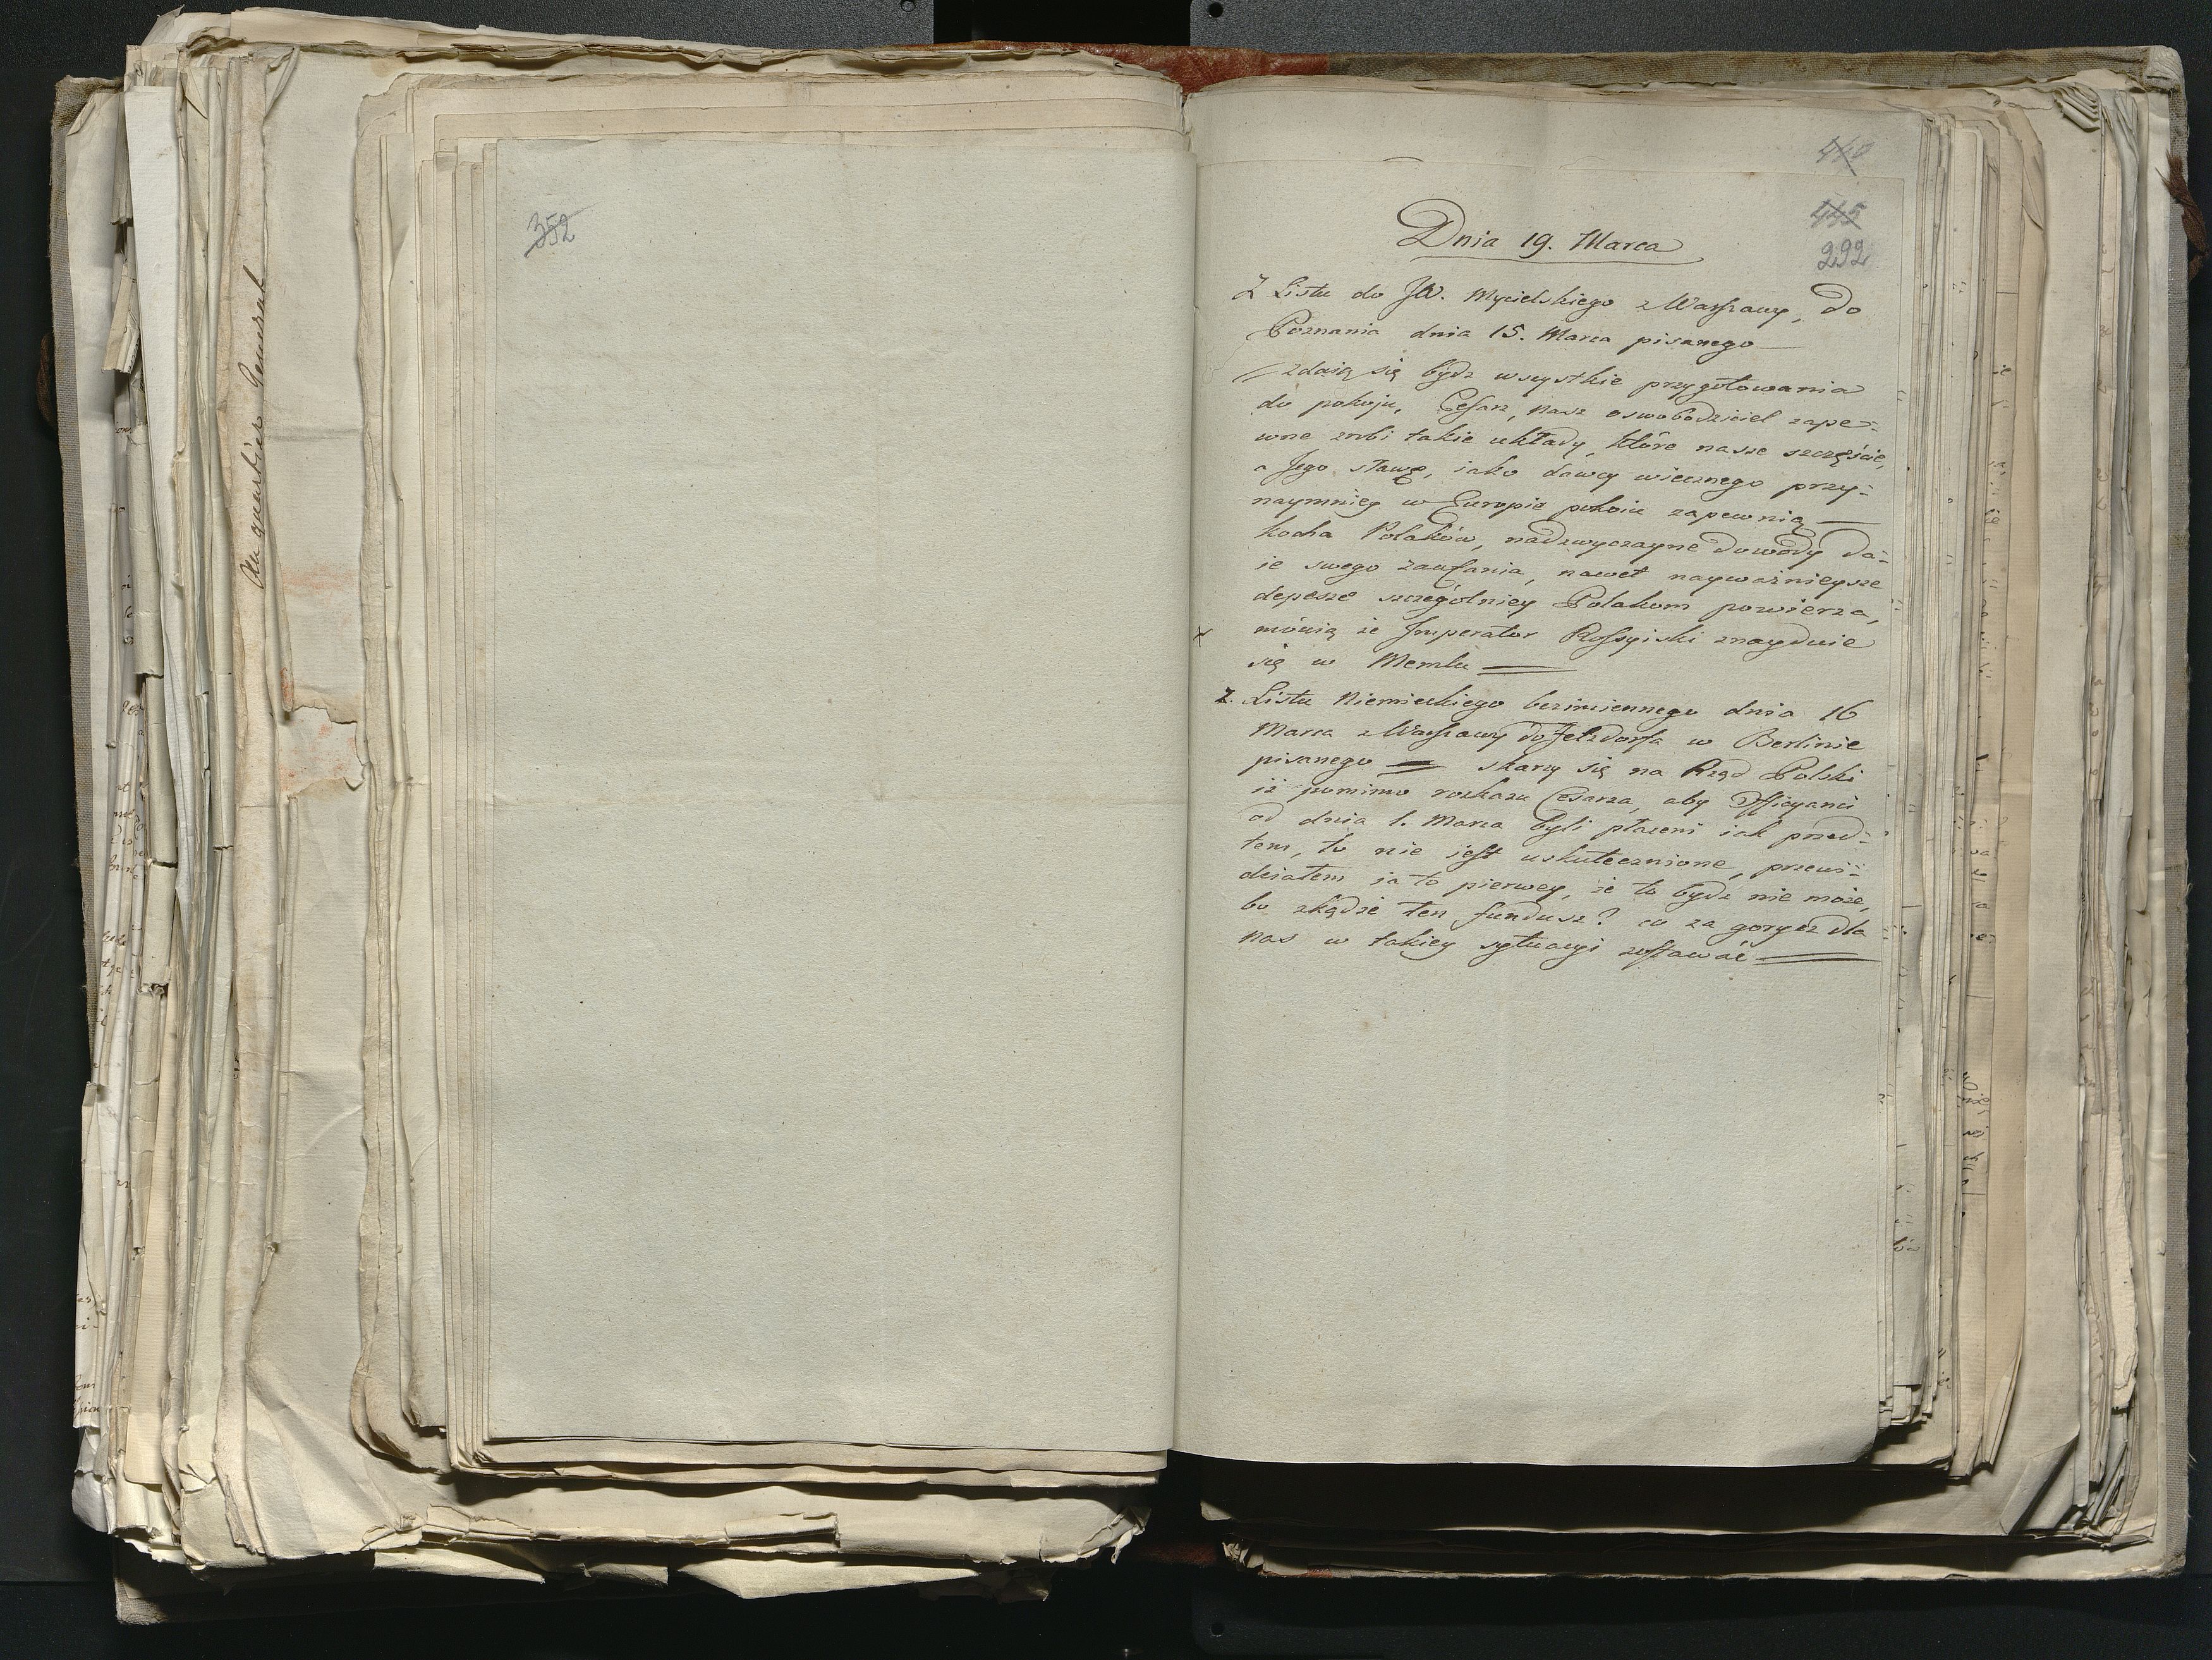 Au quartier General
352
440
445
292
Dnia 19. Marca
Z Listu do JW. Mycielskiego z Warszawy, do
Poznania dnia 15. Marca pisanego
zdaią się bydz wszystkie przygotowania
do pokoju, Cesarz, nasz oswobodziciel zape-
wne zrobi takie układy, które nasze szczęście,
a Jego sławę, iako dawcy wiecznego przy-
naymniey w Europie pokoiu zapewnią
kocha Polaków, nadzwyczayne dowody da-
ie swego zaufania, nawet nayważnieysze
depesze szczególniey Polakom powierza,
mówią że Imperator Rossyiski znayduie
się w Memlu
Z. Listu Niemieckiego bezimiennego dnia 16
Marca z Warszawy do Jelzdorfa w Berlinie
pisanego skarzy się na Rząd Polski
iż pomimo rozkazu Cesarza, aby Officyanci
od dnia 1. Marca byli płaceni iak przed-
tem, to nie jest uskutecznione, przewi-
działem ia to pierwey, że to bydz nie może,
bo zkądże ten fundusz? co za gorycz dla
nas w takiey sytuacyi zostawać